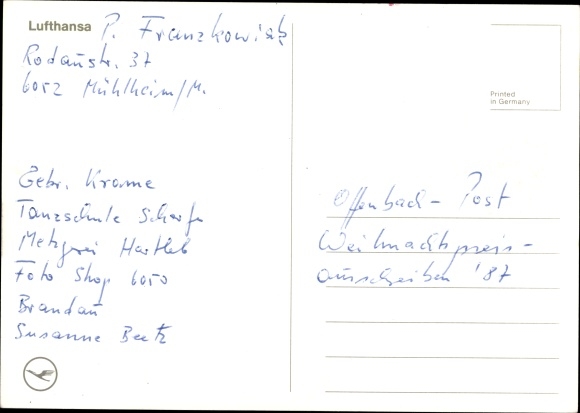 Lufthansa P. Franzkowiak
Rodaustr. 37
6052 Mühlheim/M.
Printed
in Germany
Gebr. Krame
Tanzschule Scherfe
Metzgerei Hartleb
Foto Shop 6050
Brandau
Susanne Beetz
Offenbach-Post
Weihnachtspreis-
ausschreiben '87